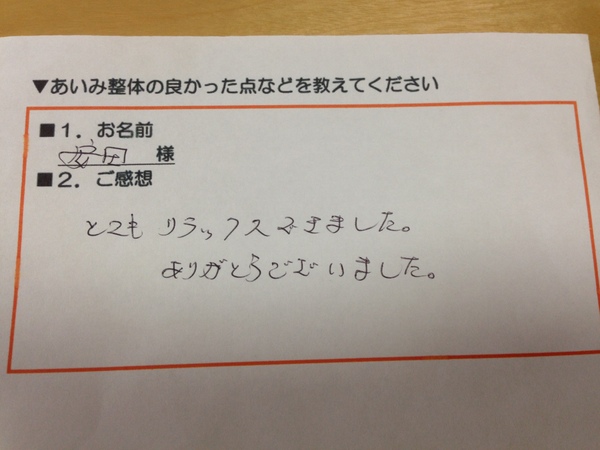 ▼あいみ整体の良かった点などを教えてください
■1．お名前
安田 様
■2．ご感想
とてもリラックスできました。
ありがとうございました。